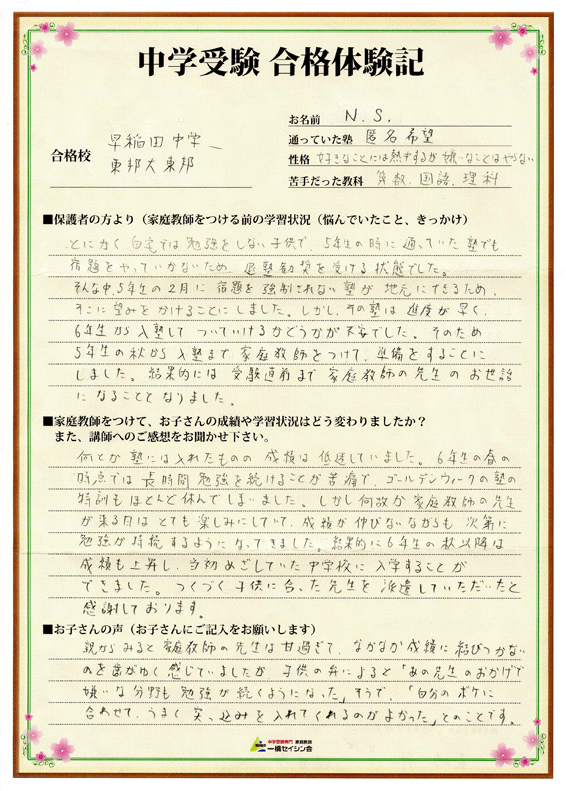 中学受験 合格体験記
合格校
早稲田中学
東邦大東邦
お名前 N.S.
通っていた塾 匿名希望
性格 好きなことには熱中するが嫌いなことはやらない
苦手だった教科 算数、国語、理科
■保護者の方より（家庭教師をつける前の学習状況（悩んでいたこと、きっかけ）
とにかく自宅では勉強をしない子供で、5年生の時に通っていた塾でも
宿題をやっていかないため、退塾勧奨を受ける状態でした。
そんな中、5年生の2月に宿題を強制されない塾が地元にできるため、
そこに望みをかけることにしました。しかし、その塾は進度が早く、
6年生から入塾してついていけるかどうかが不安でした。そのため
5年生の秋から入塾まで家庭教師をつけて、準備をすることに
しました。結果的には受験直前まで家庭教師の先生のお世話
になることとなりました。
■家庭教師をつけて、お子さんの成績や学習状況はどう変わりましたか？
また、講師へのご感想をお聞かせ下さい。
何とか塾には入れたものの成績は低迷していました。6年生の春の
時点では長時間勉強を続けることが苦痛で、ゴールデンウィークの塾の
特訓もほとんど休んでしまいました。しかし何故か家庭教師の先生
が来る日はとても楽しみにしていて、成績が伸びないながらも次第に
勉強が持続するようになってきました。結果的に6年生の秋以降は
成績も上昇し、当初めざしていた中学校に入学することが
できました。つくづく子供に合った先生を派遣していただいたと
感謝しております。
■お子さんの声（お子さんにご記入をお願いします）
親からみると家庭教師の先生は甘過ぎて、なかなか成績に結びつかない
のを歯がゆく感じていましたが、子供の弁によると「あの先生のおかげで
嫌いな分野も勉強が続くようになった」そうで、「自分のボケに
合わせて、うまく突っ込みを入れてくれるのがよかった」とのことです。
中学受験専門 家庭教師
一橋セイシン会